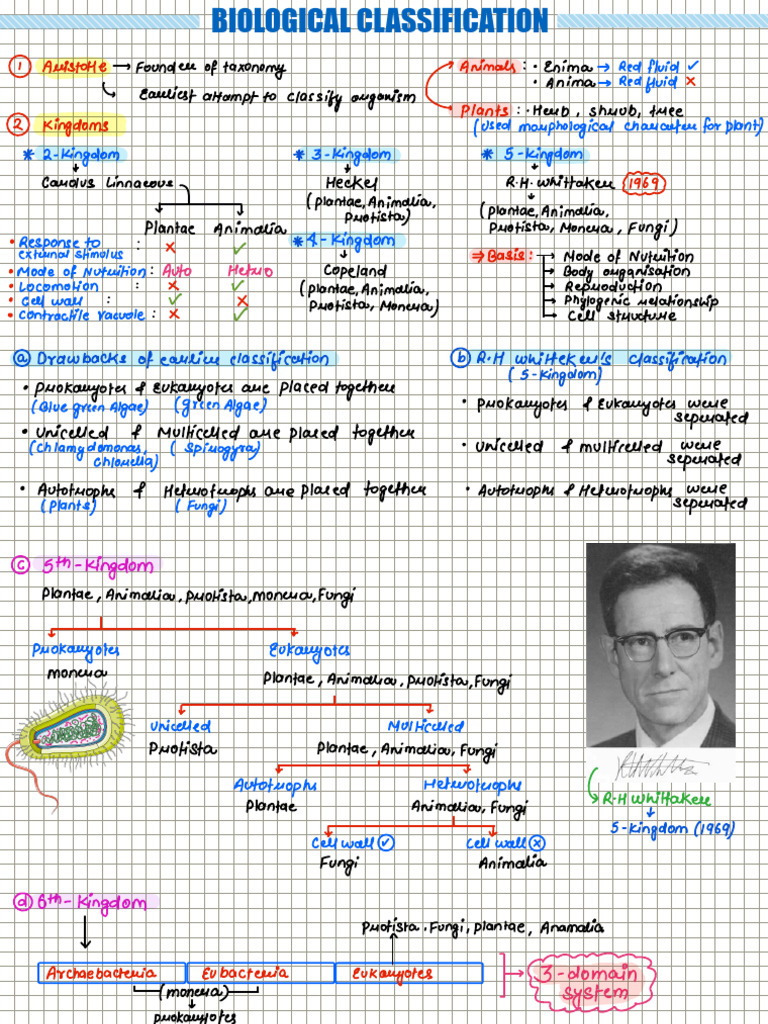 BIOLOGICAL CLASSIFICATION
① Aristotle → Founder of taxonomy
↳ Earliest attempt to classify organism
Animals : • Enima → Red fluid ✓
• Anima → Red fluid ✗
Plants : • Herb, shrub, tree
(Used morphological character for plant)
② Kingdoms
* 2-Kingdom
Carolus Linnaeous
Plantae Animalia
• Response to external stimulus : ✗ ✓
• Mode of Nutrition : Auto Hetro
• Locomotion : ✗ ✓
• Cell wall : ✓ ✗
• Contractile vacuole : ✗ ✓
* 3-Kingdom
Heckel
(Plantae, Animalia,
Protista)
* 4-Kingdom
Copeland
(Plantae, Animalia,
Protista, Monera)
* 5-Kingdom
R.H. Whittaker 1969
(Plantae, Animalia,
Protista, Monera, Fungi)
⇒ Basis: → Mode of Nutrition
→ Body organisation
→ Reproduction
→ Phylogenic relationship
→ Cell structure
ⓐ Drawbacks of earlier classification
• Prokaryotes & Eukaryotes are placed together
(Blue green Algae) (green Algae)
• Unicelled & Multicelled are placed together
(Chlamydomonas, (Spirogyra)
Chlorella)
• Autotrophs & Heterotrophs are placed together
(Plants) (Fungi)
ⓑ R.H Whitteker's classification
(5-Kingdom)
• Prokaryotes & Eukaryotes were
seperated
• Unicelled & multicelled were
seperated
• Autotrophs & Heterotrophs were
seperated
ⓒ 5th-Kingdom
Plantae, Animalia, Protista, monera, Fungi
Prokaryotes Eukaryotes
monera Plantae, Animalia, Protista, Fungi
Unicelled Multicelled
Protista Plantae, Animalia, Fungi
Autotrophs Heterotrophs
Plantae Animalia, Fungi
Cell wall ✓ Cell wall ✗
Fungi Animalia
R.H Whittaker
5-Kingdom (1969)
ⓓ 6th-Kingdom
Protista, Fungi, Plantae, Anamalia
Archaebacteria Eubacteria Eukaryotes
(monera)
prokaryotes
3-domain
system